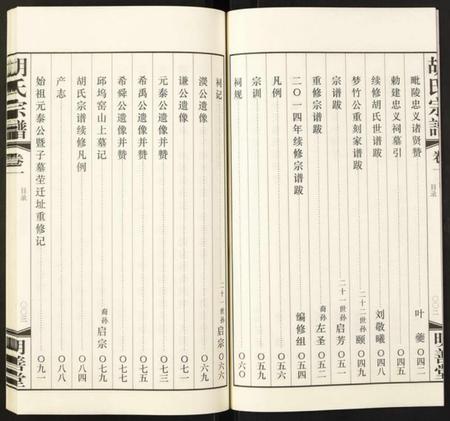 胡氏宗谱 卷一 目录 〇〇三 明善堂
毗陵忠义诸贤赞 叶夔 〇四二
勅建忠义祠墓引 〇四五
续修胡氏世谱跋 刘敬曦 〇四八
梦竹公重刻家谱跋 二十二世孙 颐 〇四九
宗谱跋 二十一世孙 启芳 〇五一
重修宗谱跋 裔孙 左圣 〇五二
二〇一四年续修宗谱跋 编修组 〇五四
凡例 〇五五
宗训 〇五九
祠规 〇六〇
祠记 二十一世孙 启宗 〇六六
濙公遗像 〇六九
谦公遗像 〇七一
元泰公遗像并赞 〇七三
希禹公遗像并赞 〇七五
希舜公遗像并赞 〇七七
邱坞窑山上墓记 裔孙 启宗 〇七七
胡氏宗谱续修凡例 〇八四
产志 〇八八
始祖元泰公暨子墓茔迁址重修记 〇九一
胡氏宗谱 卷一 目录 〇〇三 明善堂